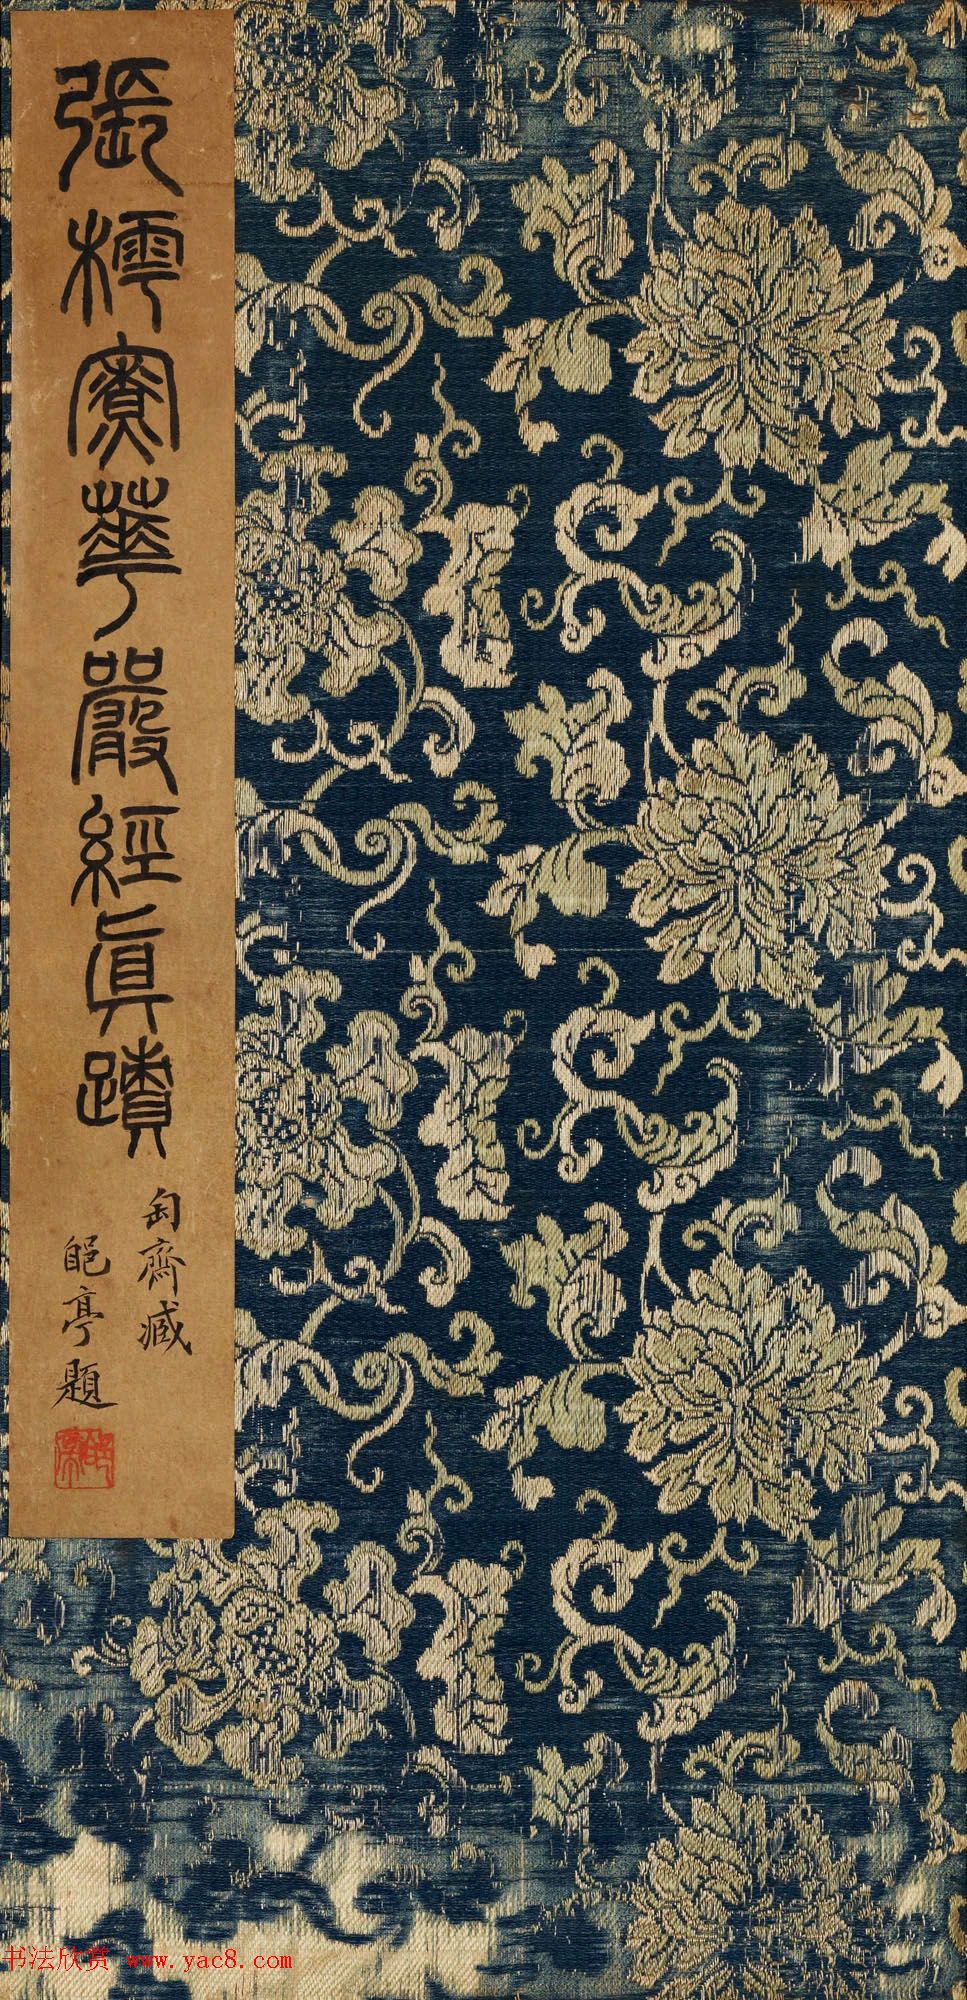 張樗寮華嚴經眞蹟
匋齋臧
郋亭題
书法欣赏 www.yac8.com